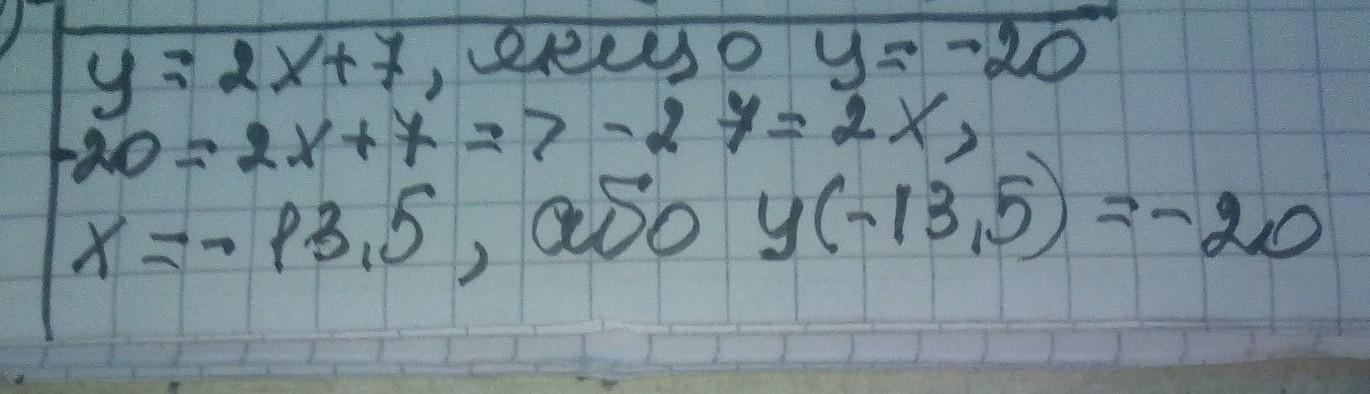 y = 2x+7, якщо y = -20
-20 = 2x + 7 => -27 = 2x,
x = -13,5, або y(-13,5) = -20